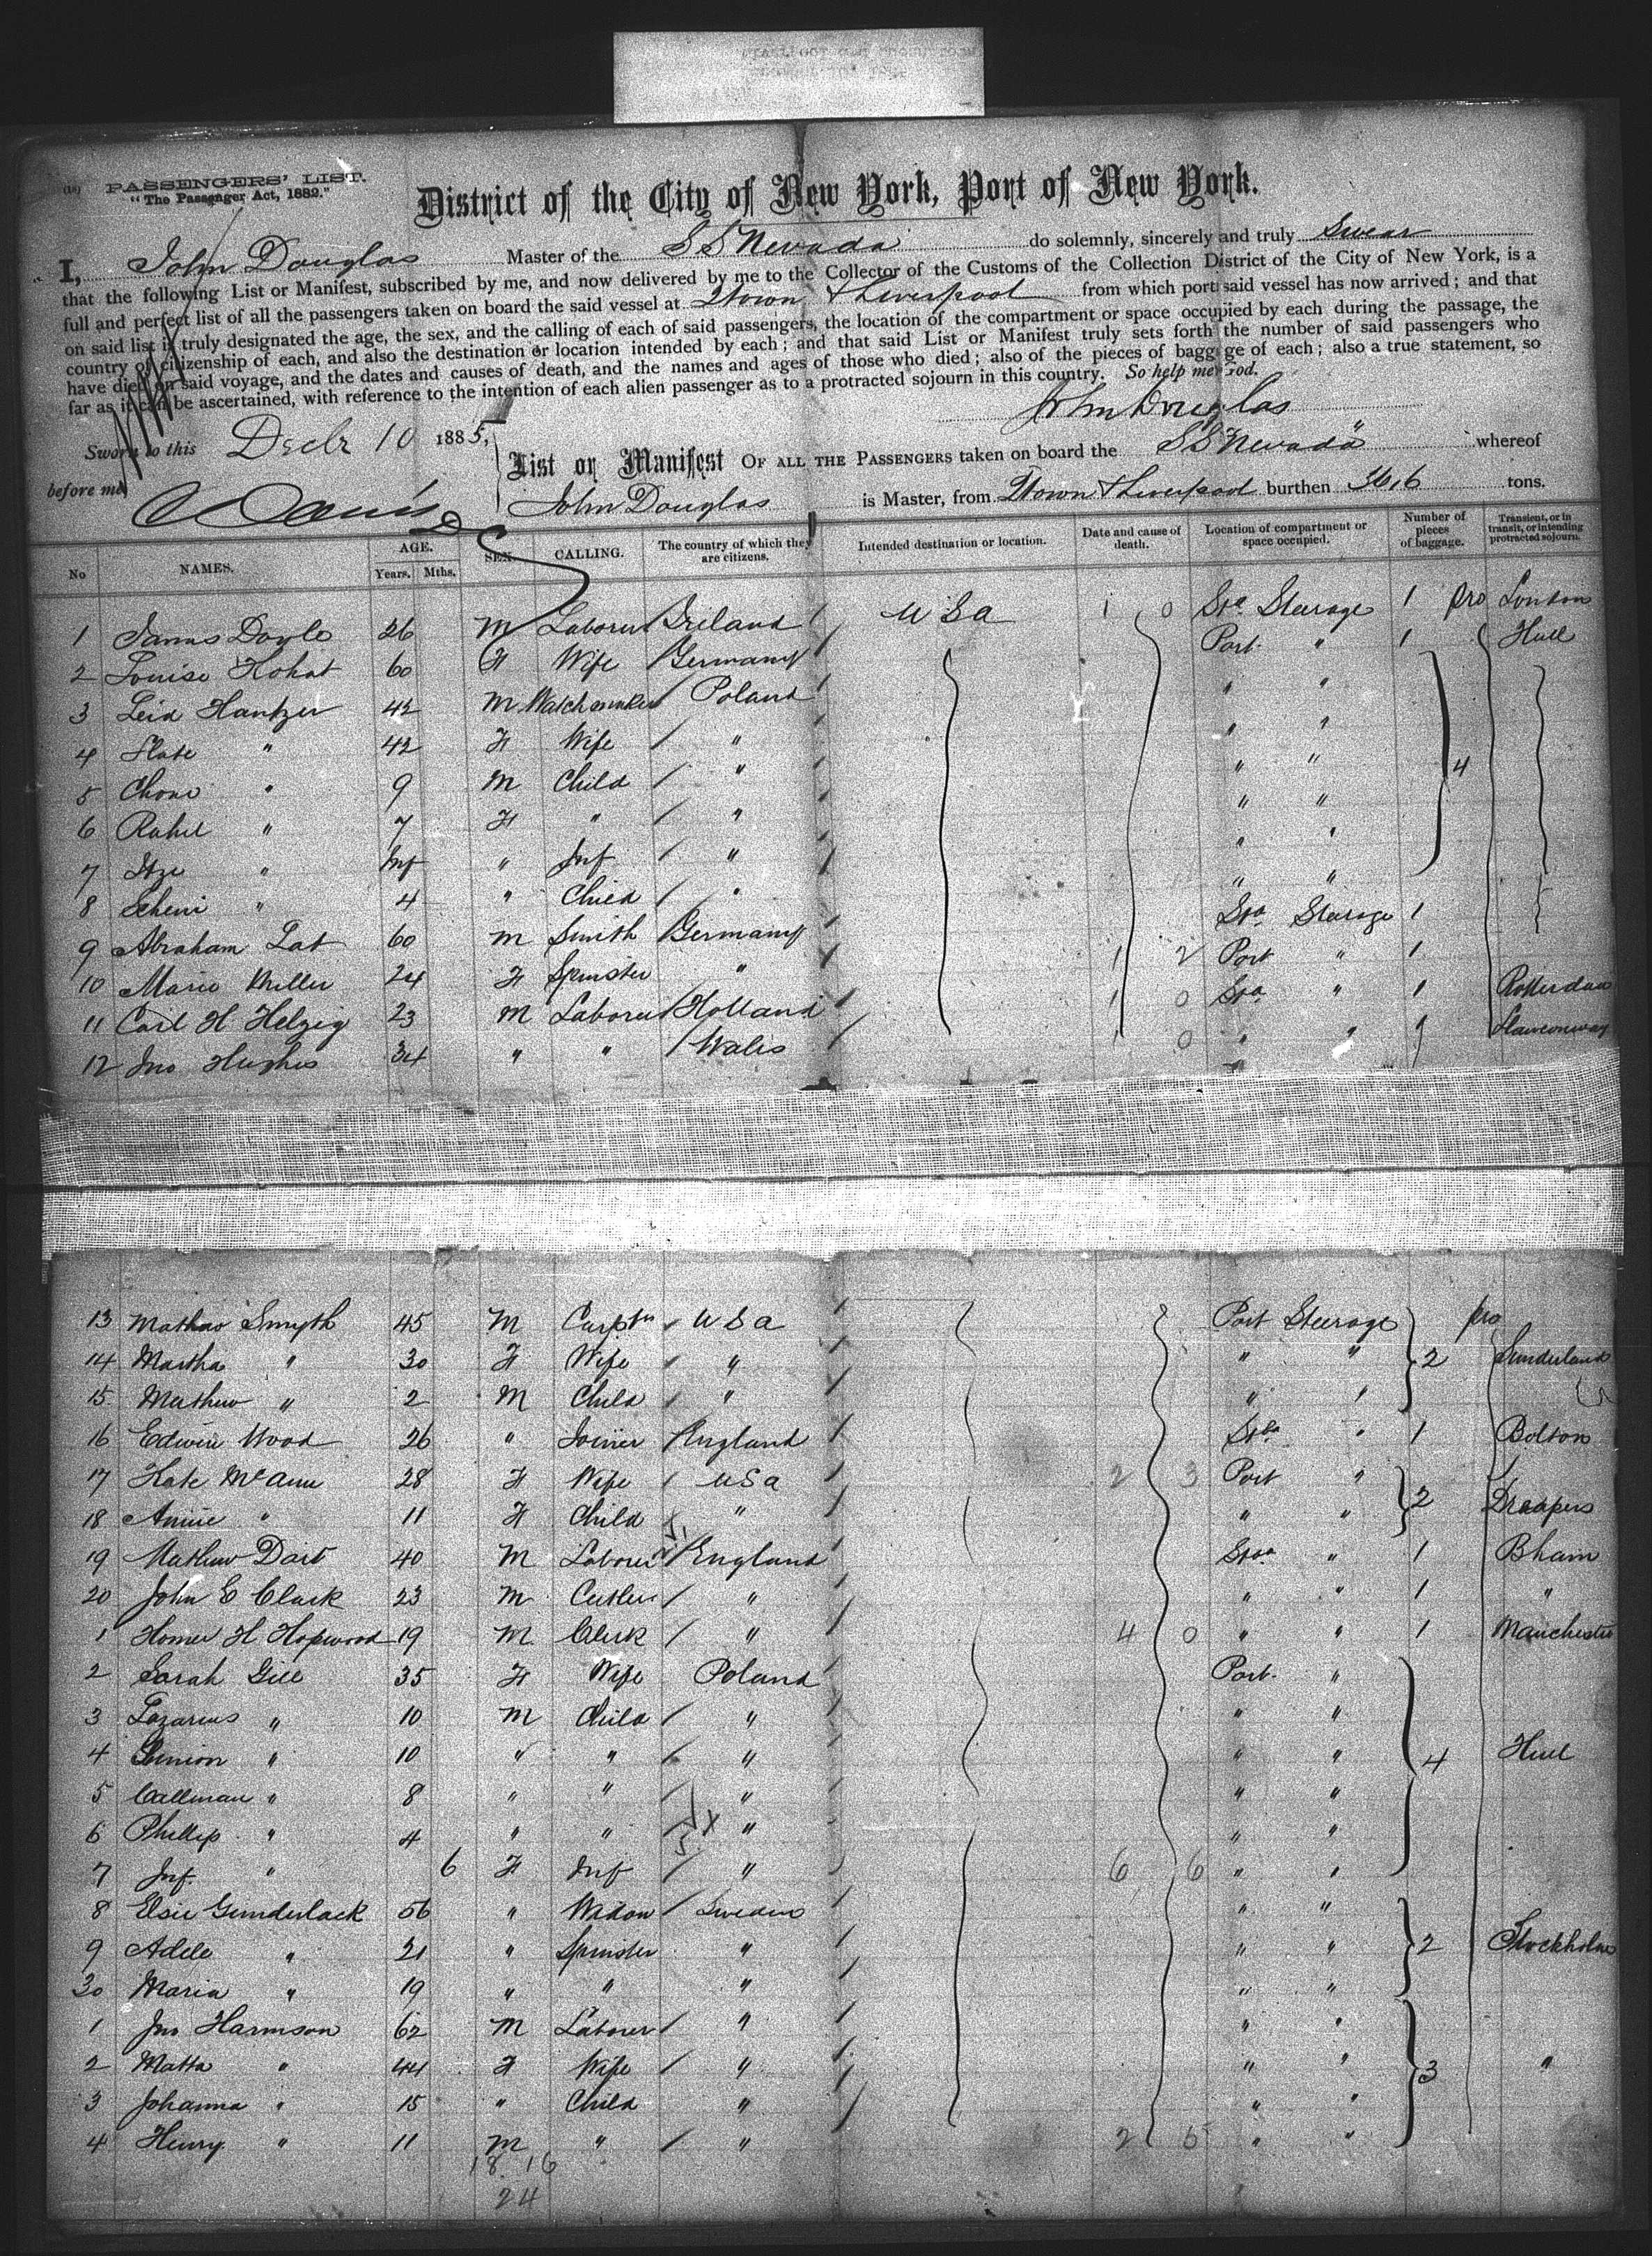 PASSENGERS' LIST.
"The Passenger Act, 1882."
District of the City of New York, Port of New York.
I, John Douglas Master of the SS Nevada do solemnly, sincerely and truly Swear
that the following List or Manifest, subscribed by me, and now delivered by me to the Collector of the Customs of the Collection District of the City of New York, is a
full and perfect list of all the passengers taken on board the said vessel at Qtown & Liverpool from which port said vessel has now arrived; and that
on said list is truly designated the age, the sex, and the calling of each of said passengers, the location of the compartment or space occupied by each during the passage, the
country of citizenship of each, and also the destination or location intended by each; and that said List or Manifest truly sets forth the number of said passengers who
have died on said voyage, and the dates and causes of death, and the names and ages of those who died; also of the pieces of baggage of each; also a true statement, so
far as it can be ascertained, with reference to the intention of each alien passenger as to a protracted sojourn in this country. So help me God.
John Douglas
Sworn to this Decbr 10 1885,
before me
List or Manifest OF ALL THE PASSENGERS taken on board the SS Nevada whereof
John Douglas is Master, from Qtown & Liverpool burthen 3616 tons.
No NAMES. AGE. Years. Mths. SEX. CALLING. The country of which they are citizens. Intended destination or location. Date and cause of death. Location of compartment or space occupied. Number of pieces of baggage. Transient, or in transit, or intending protracted sojourn.
1 James Doyle 26 M Laborer Ireland USa 1 0 Sta Steerage 1 pro London
2 Louise Kohat 60 F Wife Germany Port " 1 Hull
3 Leid Hantzer 42 M Watchmaker Poland " "
4 Slate " 42 F Wife " " "
5 Chone " 9 M Child " " " 4
6 Rahel " 7 F " " " "
7 Itze " Inf " Inf " " "
8 Scheni " 4 " Child " " "
9 Abraham Lat 60 M Smith Germany Sta Steerage 1
10 Marie Miller 24 F Spinster " 1 2 Port " 1
11 Carl H Helzig 23 M Laborer Holland 1 0 Sta " 1 Rotterdam
12 Jno Hughes 34 " " Wales 1 0 " " 1
13 Mathew Smyth 45 M Carptr USa Port Steerage pro
14 Martha " 30 F Wife " " " 2 Sunderland
15 Mathew " 2 M Child " " "
16 Edwin Wood 26 " Joiner England Stba " 1 Bolton
17 Kate McAnn 28 F Wife USa 2 3 Port "
18 Annie " 11 F Child " " " 2 Draapers
19 Mathew Dart 40 M Laborer England Stba " 1 Bham
20 John E Clark 23 M Cutler " " " 1 "
1 Homer H Hopwood 19 M Clerk " 4 0 " " 1 Manchester
2 Sarah Gill 35 F Wife Poland Port "
3 Lazarus " 10 M Child " " "
4 Simion " 10 " " " " " 4 Hull
5 Callman " 8 " " " " "
6 Phillip " 4 " " " " "
7 Inf " 6 F Inf " 6 6 " "
8 Elsie Gunderlack 56 " Widow Sweden " "
9 Adele " 21 " Spinster " " " 2 Stockholm
30 Maria " 19 " " " " "
1 Jno Harmson 62 M Laborer " " "
2 Matta " 44 F Wife " " " 3 "
3 Johanna " 15 " Child " " "
4 Henry " 11 M " " 2 5 " "
18 16
24